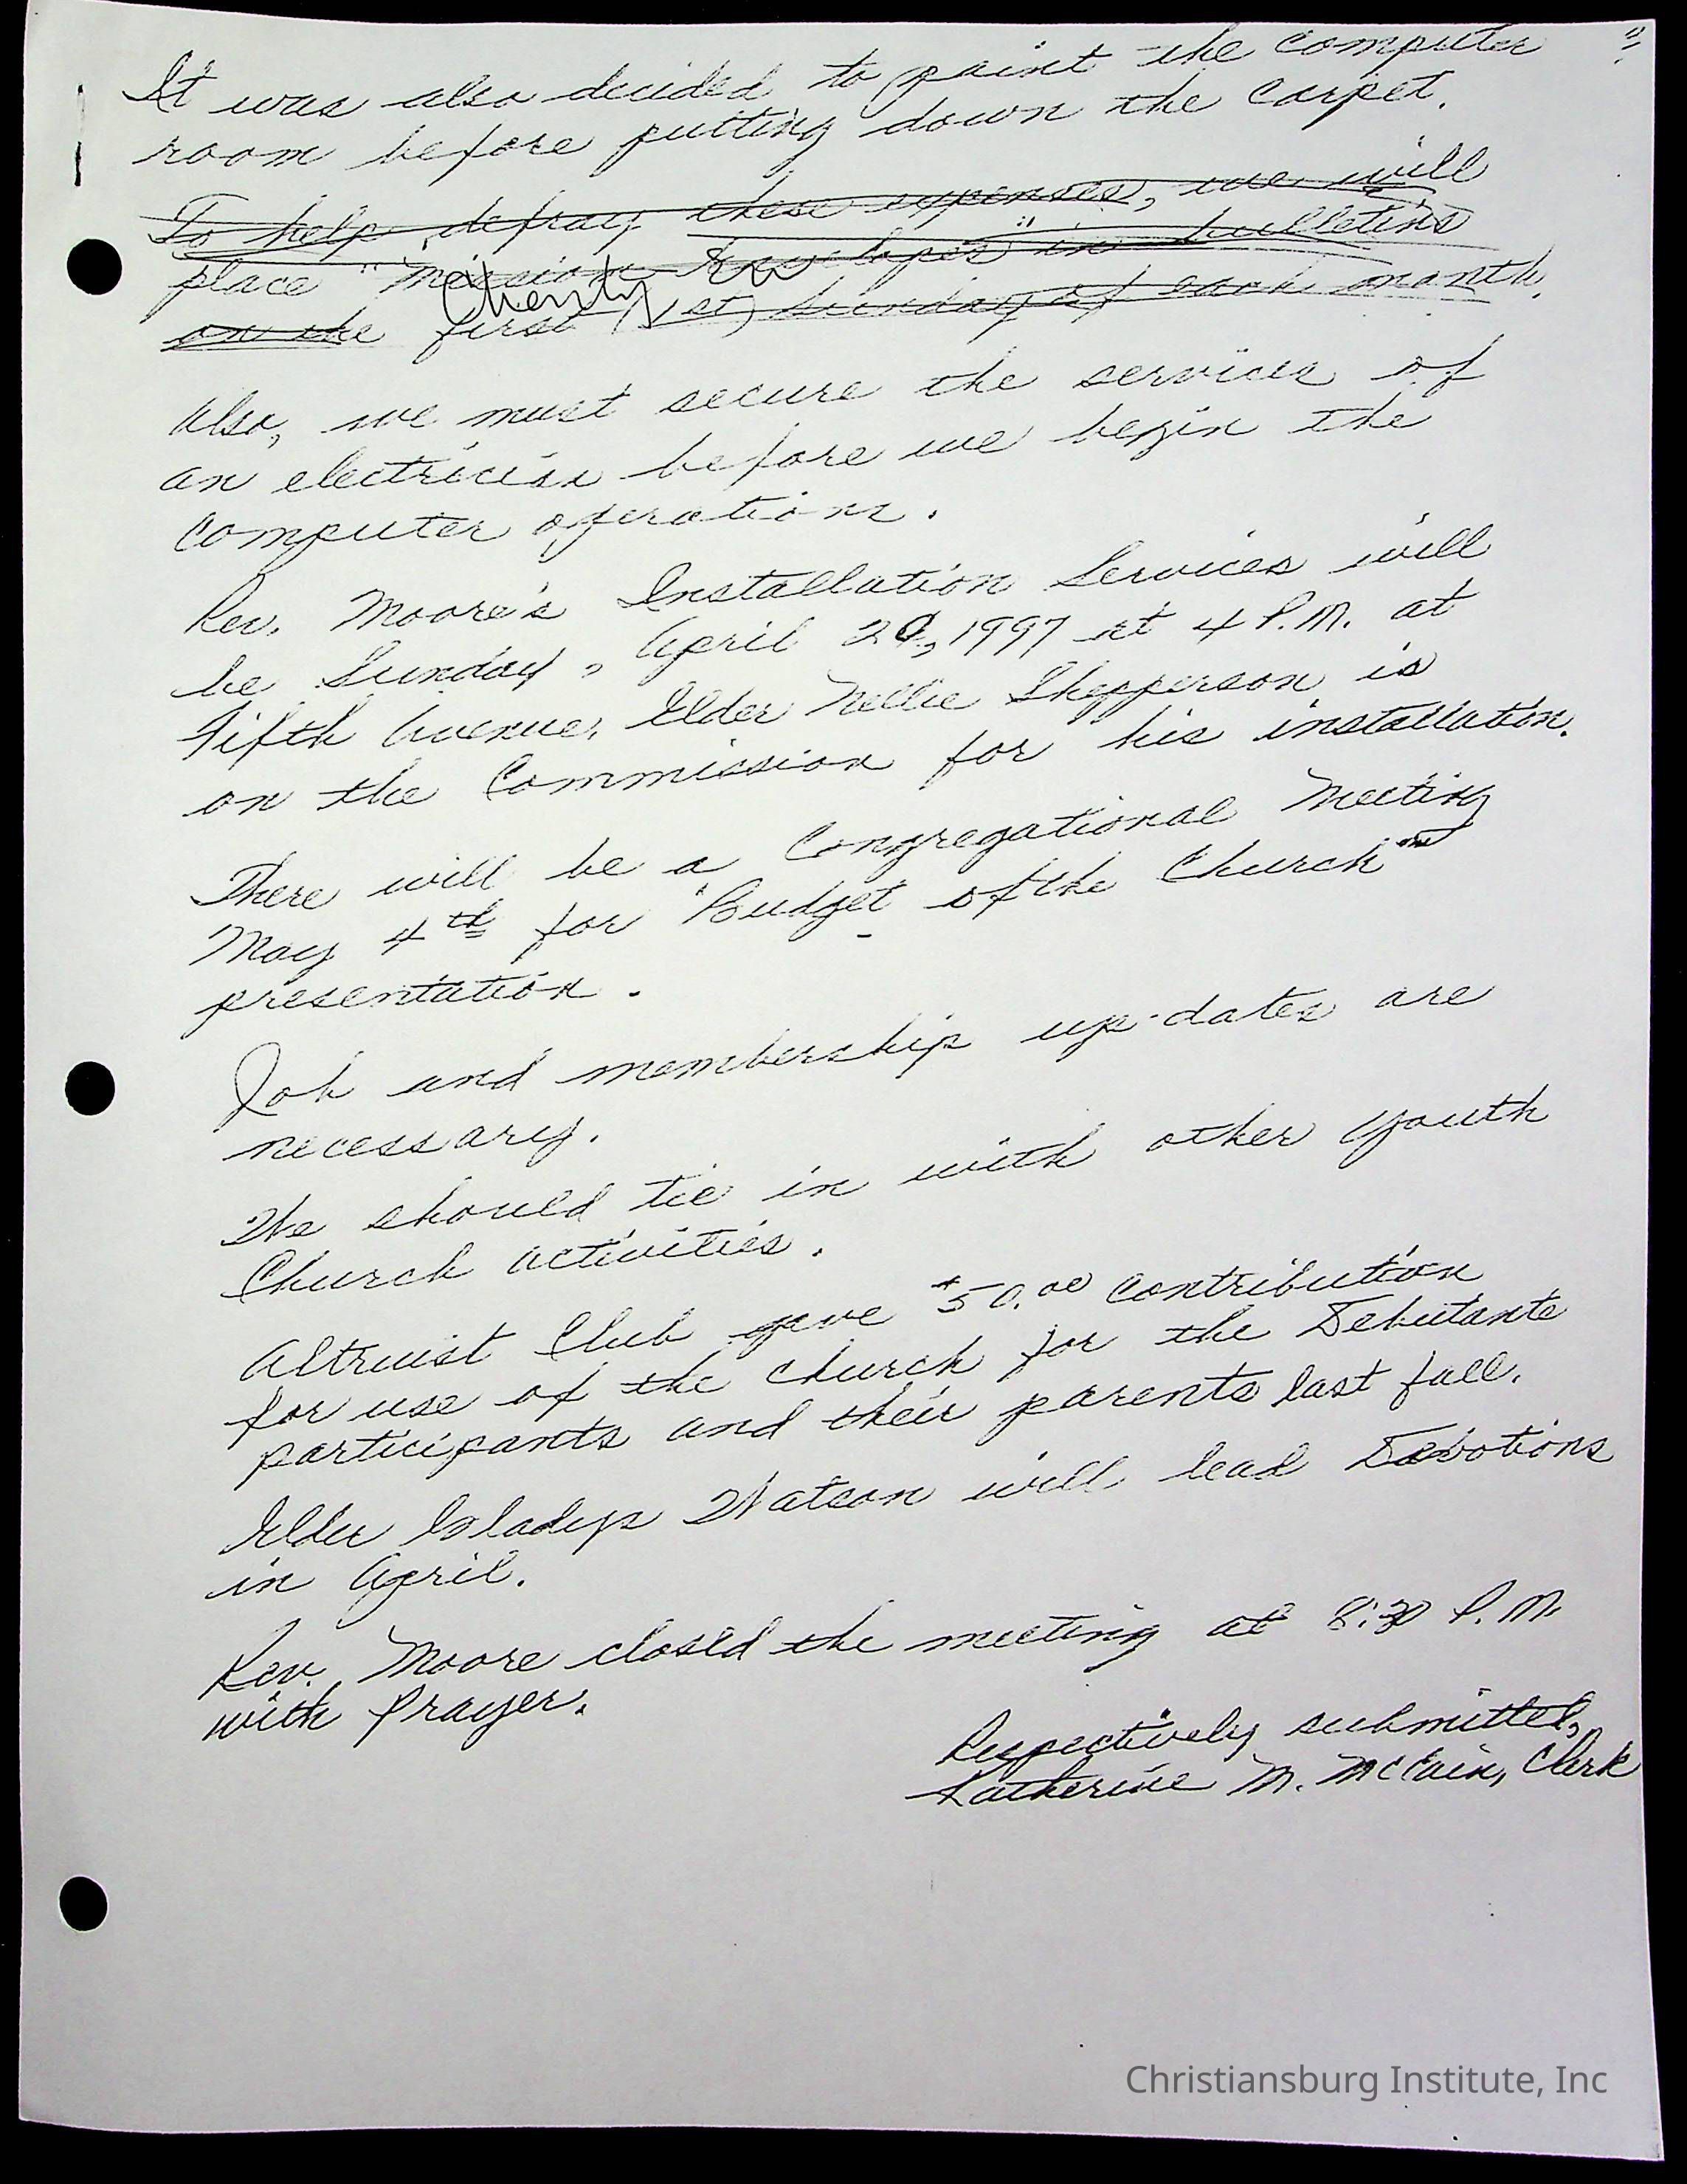 It was also decided to paint the computer
room before putting down the carpet.
To help defray these expenses, we will
place "Mission Envelopes" in bulletins
Charity
on the first (1st) Sunday of each month.
Also, we must secure the services of
an electrician before we begin the
computer operations.
Rev. Moore's Installation Services will
be Sunday, April 20, 1997 at 4 P.M. at
Fifth Avenue. Elder Nellie Shepperson is
on the Commission for his installation.
There will be a Congregational Meeting
on
May 4th for "Budget of the Church"
presentation.
Job and membership up-dates are
necessary.
We should tie in with other youth
Church activities.
Altruist Club gave $50.00 contribution
for use of the church for the Debutante
participants and their parents last fall.
Elder Gladys Watson will lead Devotions
in April.
Rev. Moore closed the meeting at 8:30 P.M.
with Prayer.
Respectively submitted,
Katherine M. McCain, Clerk
Christiansburg Institute, Inc